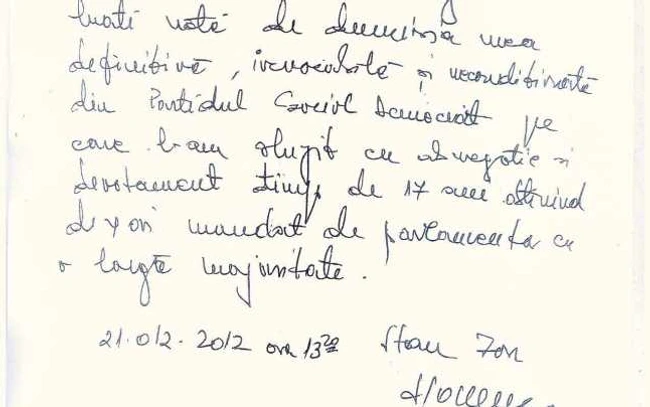 luati notă de demisia mea
definitivă, irevocabilă și necondiționată
din Partidul Social Democrat pe
care l-am slujit cu abnegatie și
devotament timp de 17 ani obtinind
de 4 ori mandat de parlamentar cu
o largă majoritate.
21.02.2012 ora 13 20 Stan Ion